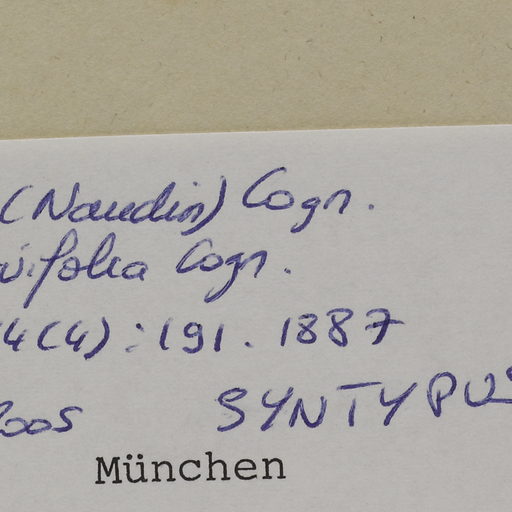 (Naudin) Cogn.
vifolia Cogn.
14(4): 191. 1887
2005 SYNTYPUS
München